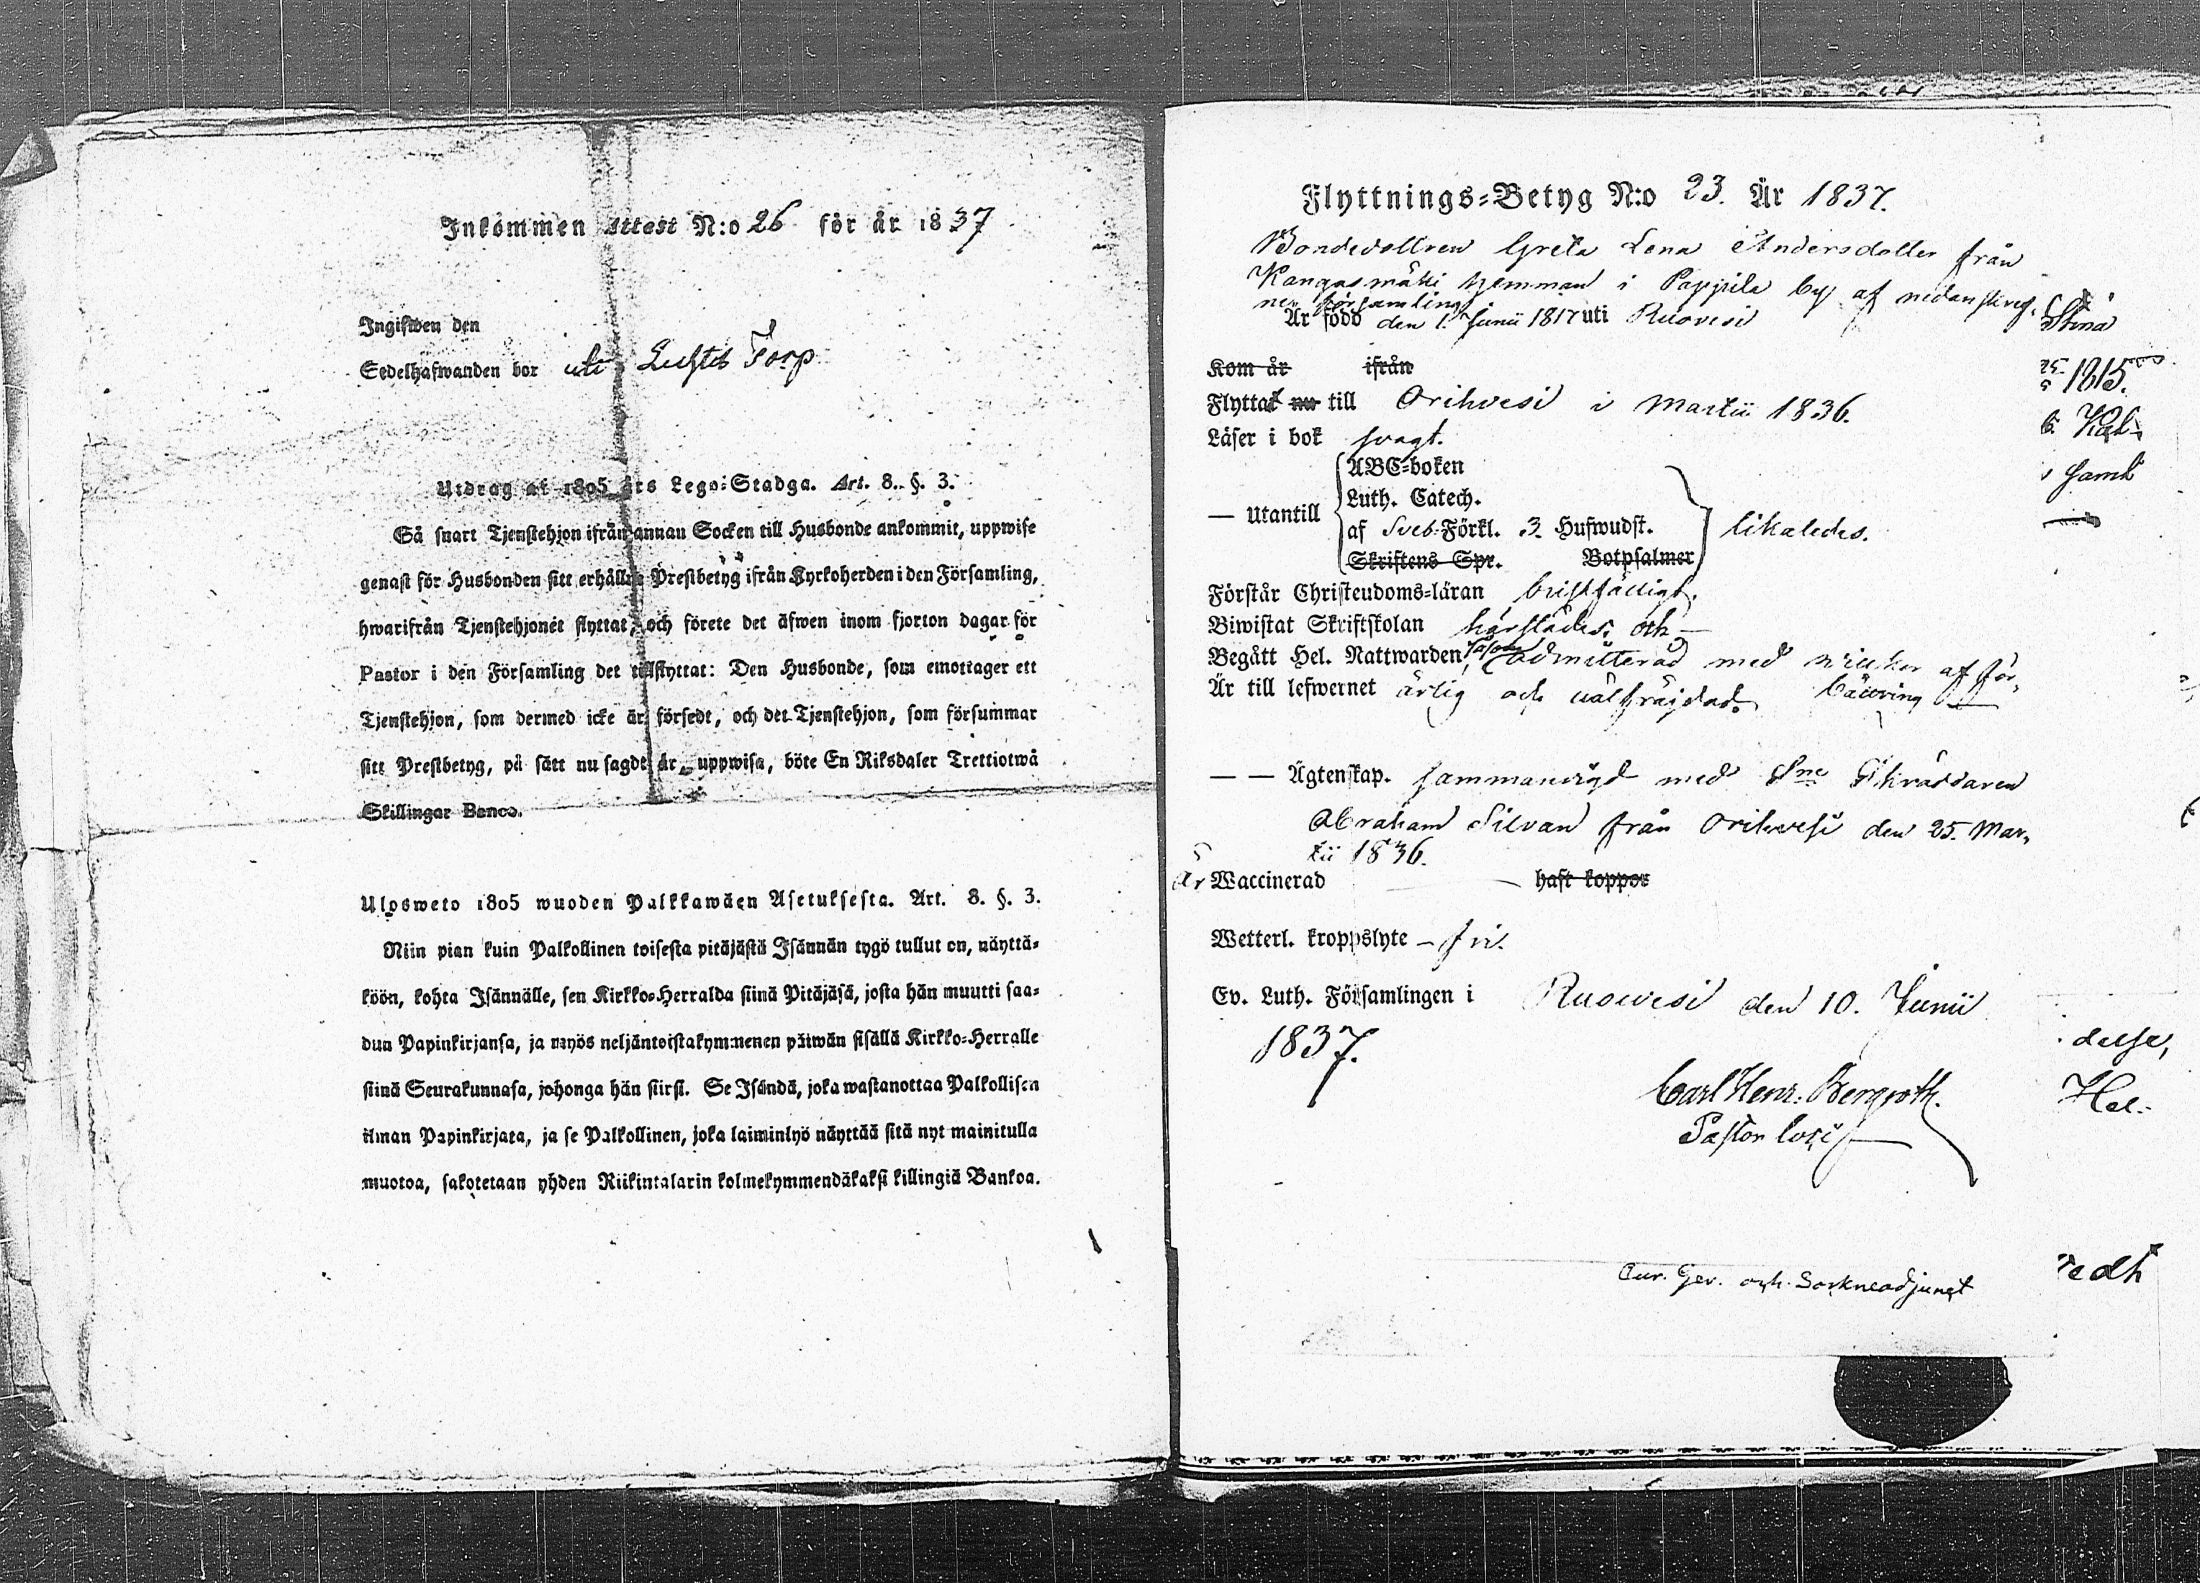 Inkommen attest N:o 26 för år 1837
Ingifwen den
Sedelhafwanden bor uti Torp
Utdrag af 1805 års Lego-Stadga. Art. 8. §. 3.
Så snart Tjenstehjon ifrån annan Socken till Husbonde ankommit, uppwise
genast för Husbonden sitt erhållne Prestbetyg ifrån Kyrkoherden i den Församling,
hwarifrån Tjenstehjonet flyttat, och förete det äfwen inom fjorton dagar för
Pastor i den Församling det tillflyttat: Den Husbonde, som emottager ett
Tjenstehjon, som dermed icke är försedt, och det Tjenstehjon, som försummar
sitt Prestbetyg, på sätt nu sagdt är, uppwisa, böte En Riksdaler Trettiotwå
Skillingar Banco.
Ulosweto 1805 wuoden Palkkawäen Asetuksesta. Art. 8. §. 3.
Niin pian kuin Palkollinen toisesta pitäjästä Isännän tygö tullut on, näyttä-
köön, kohta Isännälle, sen Kirkko-Herralda siinä Pitäjäsä, josta hän muutti saa-
dun Papinkirjansa, ja myös neljäntoistakymmenen päiwän sisällä Kirkko-Herralle
siinä Seurakunnasa, johonga hän siirsi. Se Isändä, joka wastanottaa Palkollisen
ilman Papinkirjata, ja se Palkollinen, joka laiminlyö näyttää sitä nyt mainitulla
muotoa, sakotetaan yhden Riikintalarin kolmekymmendäkaksi killingiä Bankoa.
Flyttnings-Betyg N:o 23. År 1837.
Bondedottren Greta Lena Andersdotter från
Kangasmäki hemman i Pappila by af nedanskref.
ne församling
Är född den 1. Junii 1817 uti Ruovesi
Kom år ifrån
Flyttat nu till Orihvesi i Martii 1836.
Läser i bok svagt.
— Utantill ABC-boken
Luth. Catech.
af Sveb. Förkl. 3. Hufwudst. likaledes.
Skriftens Spr. Botpsalmer
Förstår Christendoms-läran bristfälligt.
Biwistat Skriftskolan härstädes. och
Begått Hel. Nattwarden, admitterad med wilkor af för-
Är till lefwernet ärlig och wälfräjdad. bättring
— — Ägtenskap. sammanvigd med Sne Skräddaren
Abraham Silvan från Orihvesi den 25. Mar-
tii 1836.
är Waccinerad — haft koppor
Wetterl. kroppslyte — fri.
Ev. Luth. Församlingen i Ruovesi den 10. Junii
1837.
Carl Henr. Bergroth.
Pastor loci
Cur. Ger. och Sockneadjunct
Stina
1815.
Kab-
samt
delse,
Hel.